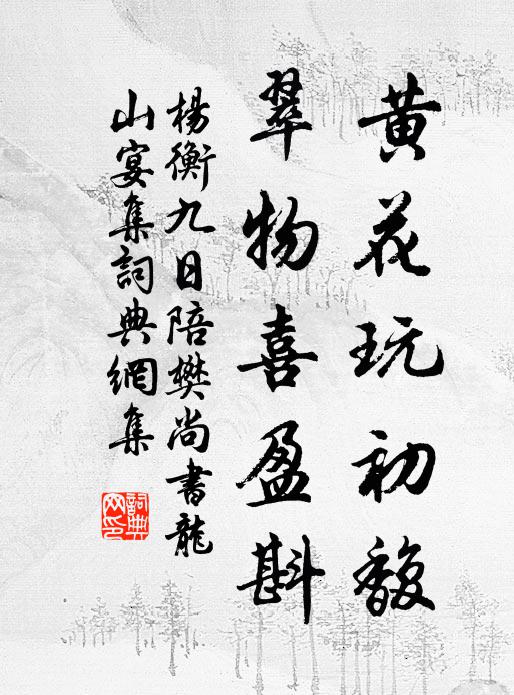 黄花玩初馥
翠物喜盈斟
楊衡九日陪樊尚書龍
山宴集詞典網集
詞典
网印